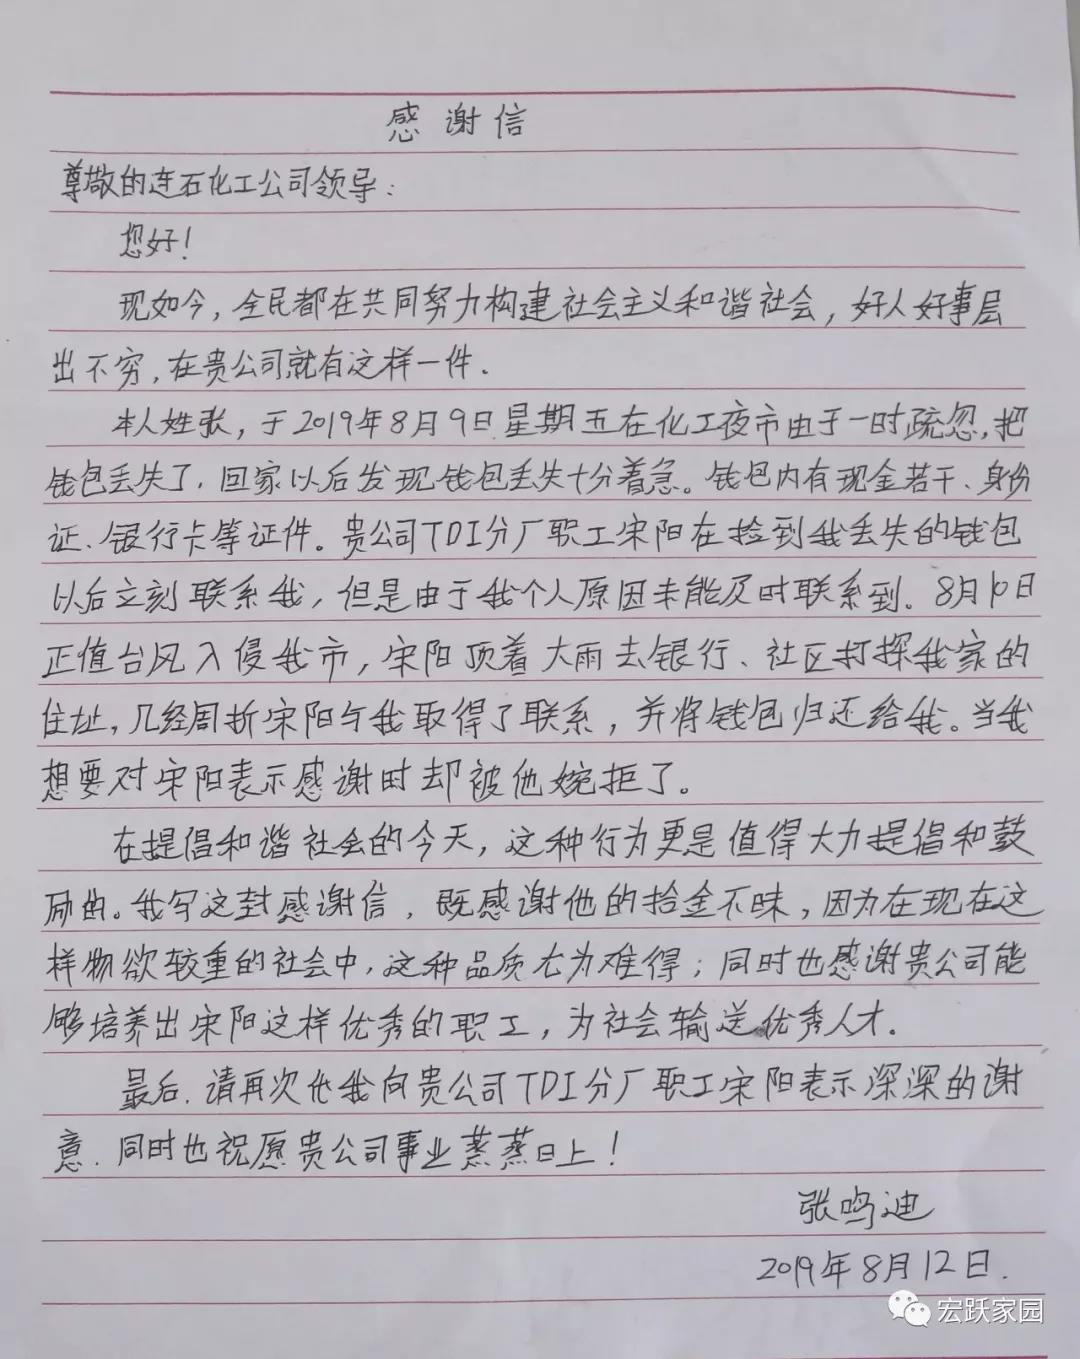 感谢信
尊敬的连石化工公司领导：
您好！
现如今，全民都在共同努力构建社会主义和谐社会，好人好事层
出不穷，在贵公司就有这样一件.
本人姓张，于2019年8月9日星期五在化工夜市由于一时疏忽，把
钱包丢失了.回家以后发现钱包丢失十分着急。钱包内有现金若干、身份
证、银行卡等证件。贵公司TDI分厂职工宋阳在捡到我丢失的钱包
以后立刻联系我，但是由于我个人原因未能及时联系到。8月10日
正值台风入侵我市，宋阳顶着大雨去银行、社区打探我家的
住址，几经周折宋阳与我取得了联系，并将钱包归还给我。当我
想要对宋阳表示感谢时却被他婉拒了。
在提倡和谐社会的今天，这种行为更是值得大力提倡和鼓
励的。我写这封感谢信，既感谢他的拾金不昧，因为在现在这
样物欲较重的社会中，这种品质尤为难得；同时也感谢贵公司能
够培养出宋阳这样优秀的职工，为社会输送优秀人才.
最后.请再次代我向贵公司TDI分厂职工宋阳表示深深的谢
意.同时也祝愿贵公司事业蒸蒸日上！
张鸣迪
2019年8月12日.
宏跃家园